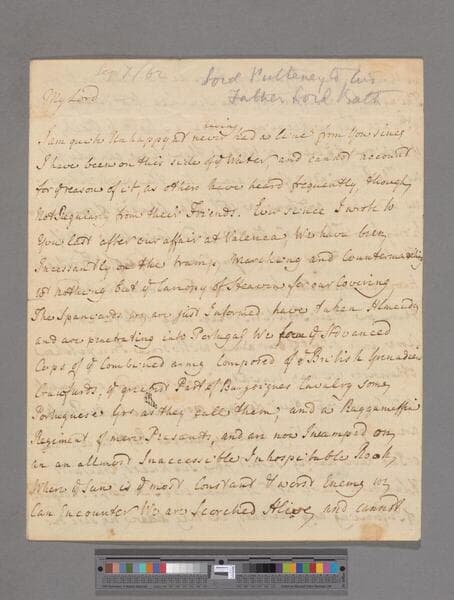 Sep 7/62
Lord Pulteney to his
Father Lord Bath
My Lord
I am quite Unhappy at never
having
had a line from You since
I have been on this side of ye Water and cannot account
for ye reason of it as others have heard frequently, though
Not Regular, from their Friends. Ever since I wrote to
You last after our affair at Valenca, We have been
Incessantly on the tramp, Marching and Countermarching
wt nothing but ye Canopy of Heaven for our Covering
The Spaniards we are just Informed have taken Almeida
and are penetrating into Portugal We form ye Advanced
Corps of ye Combined army Composed of ye British Grenadiers
Crawfurds, ye greatest Part of Burgoignes Cavalry some
Portuguese Grs as they call them, and a Raggamuffin
Regiment of mere Peasants, and are now Incamped on
an allmost Inaccessible Inhospitable Rock,
Where ye Sun is ye most Constant & worst Enemy we
Can Encounter We are Scorched Alive, and cannot